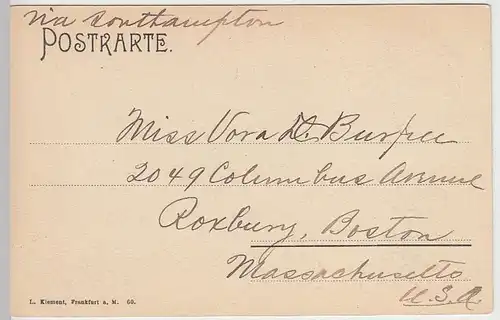 Via Southampton
POSTKARTE.
Miss Vora D. Burpee
2049 Columbus Avenue
Roxbury, Boston
Massachusetts
U.S.A.
L. Klement, Frankfurt a, M. 60.